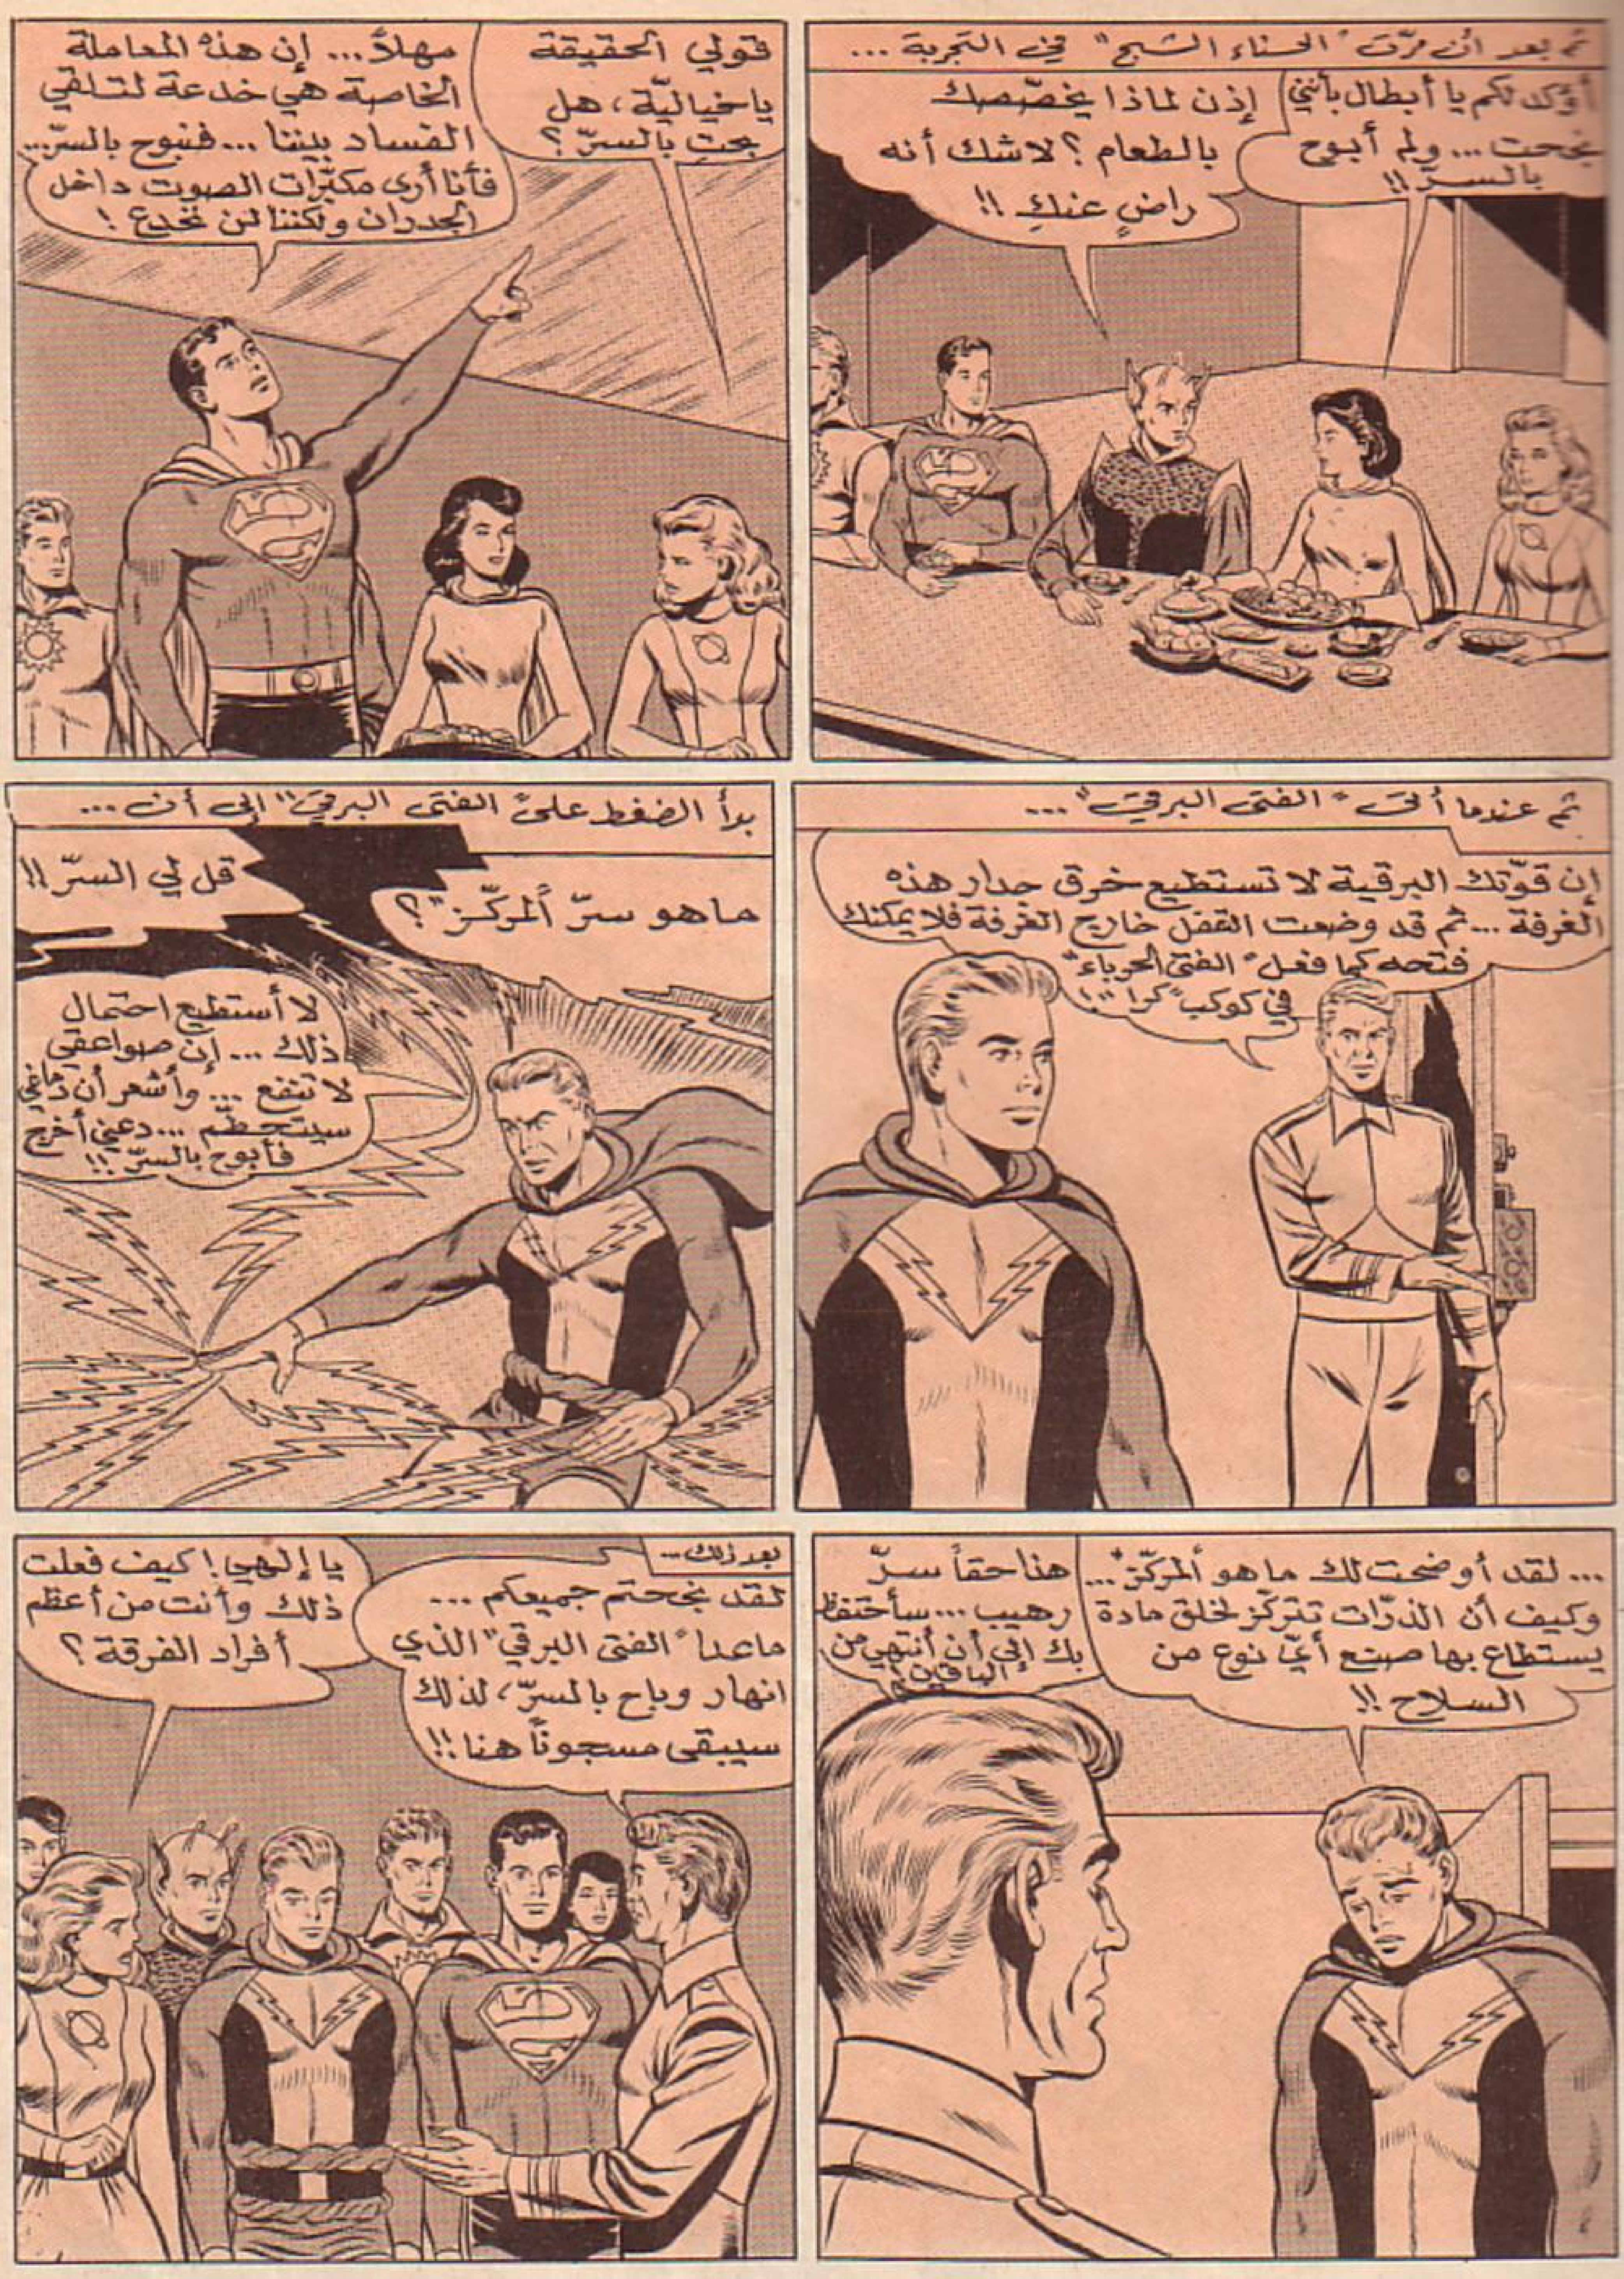 ثم بعد أن مرّت "الحسناء الشبح" في التجربة ...
أؤكد لكم يا أبطال بأنني
نجحت ... ولم أبوح
بالسرّ !!
إذن لماذا يخصّصك
بالطعام ؟ لا شك أنه
راضٍ عنكِ !!
قولي الحقيقة
يا خياليّة ، هل
بحتِ بالسرّ ؟
مهلاً ... إن هذه المعاملة
الخاصة هي خدعة لتلقي
الفساد بيننا ... فنبوح بالسرّ ...
فأنا أرى مكبّرات الصوت داخل
الجدران ولكننا لن نخدع !
ثم عندما أتى "الفتى البرقي" ...
إن قوّتك البرقية لا تستطيع خرق جدار هذه
الغرفة ... ثم قد وضعت القفل خارج الغرفة فلا يمكنك
فتحه كما فعل "الفتى الحرباء"
في كوكب "كرا" !!
بدأ الضغط على "الفتى البرقي" إلى أن ...
ما هو سرّ "المركّز" ؟
قل لي السرّ !!
لا أستطيع احتمال
ذلك ... إن صواعقي
لا تنفع ... وأشعر أن دماغي
سيتحطّم ... دعني أخرج
فأبوح بالسرّ !!
... لقد أوضحت لك ما هو "المركّز" ...
وكيف أن الذرّات تتركّز لخلق مادة
يستطاع بها صنع أيّ نوع من
السلاح !!
هذا حقاً سرّ
رهيب ... سأحتفظ
بك إلى أن أنتهي من
الباقين !
بعد ذلك ...
لقد نجحتم جميعكم ...
ما عدا "الفتى البرقي" الذي
انهار وباح بالسرّ ، لذلك
سيبقى مسجوناً هنا !!
يا إلهي ! كيف فعلت
ذلك وأنت من أعظم
أفراد الفرقة ؟